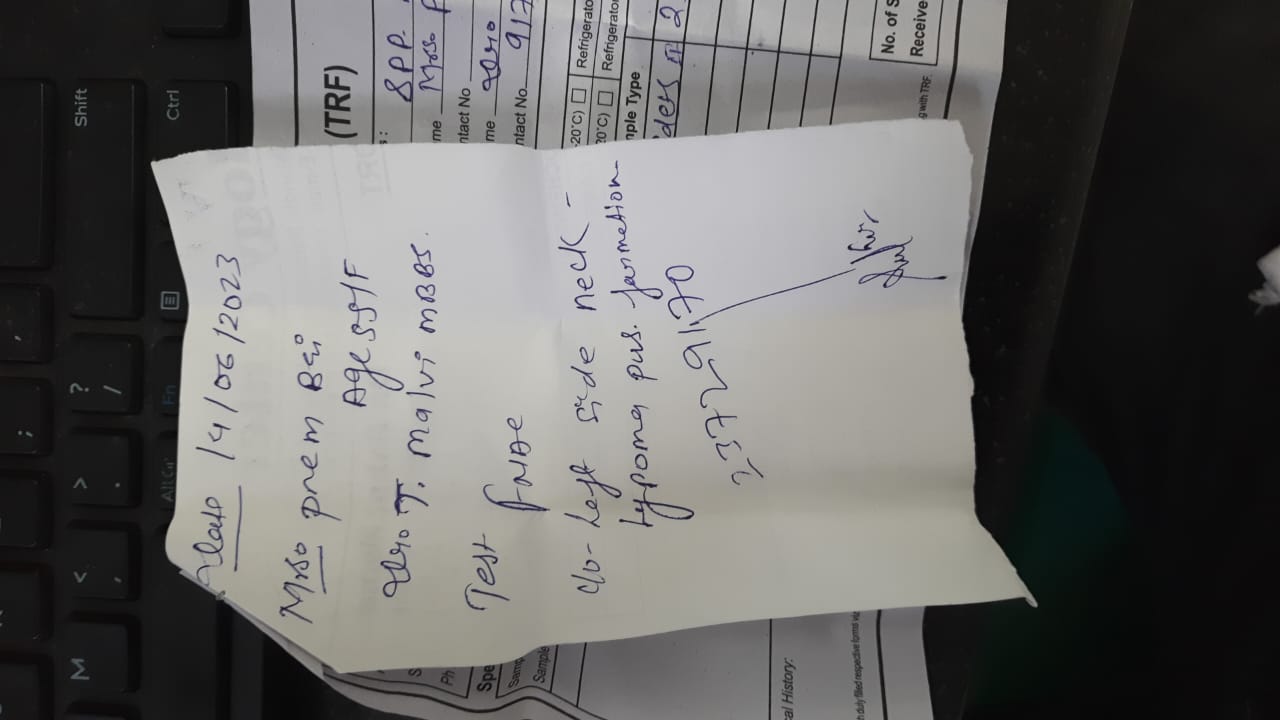 Date 14/06/2023
Mrs. prem Bai
Age 55y/F
T. malvi MBBS.
Test FNAC
c/o - Left side neck -
lypoma pus. formation
(TRF)
S.P.P.
Mrs. P
me
ntact No
me
ntact No. 917
-20°C) Refrigerato
20°C) Refrigerator
mple Type
No. of S
Receive
g with TRF.
Ph
Spe
Samp
Sample
al History:
h duly filled respective forms via
Shift
Ctrl
Fn
Alt Gr
? /
> .
< ,
M
;